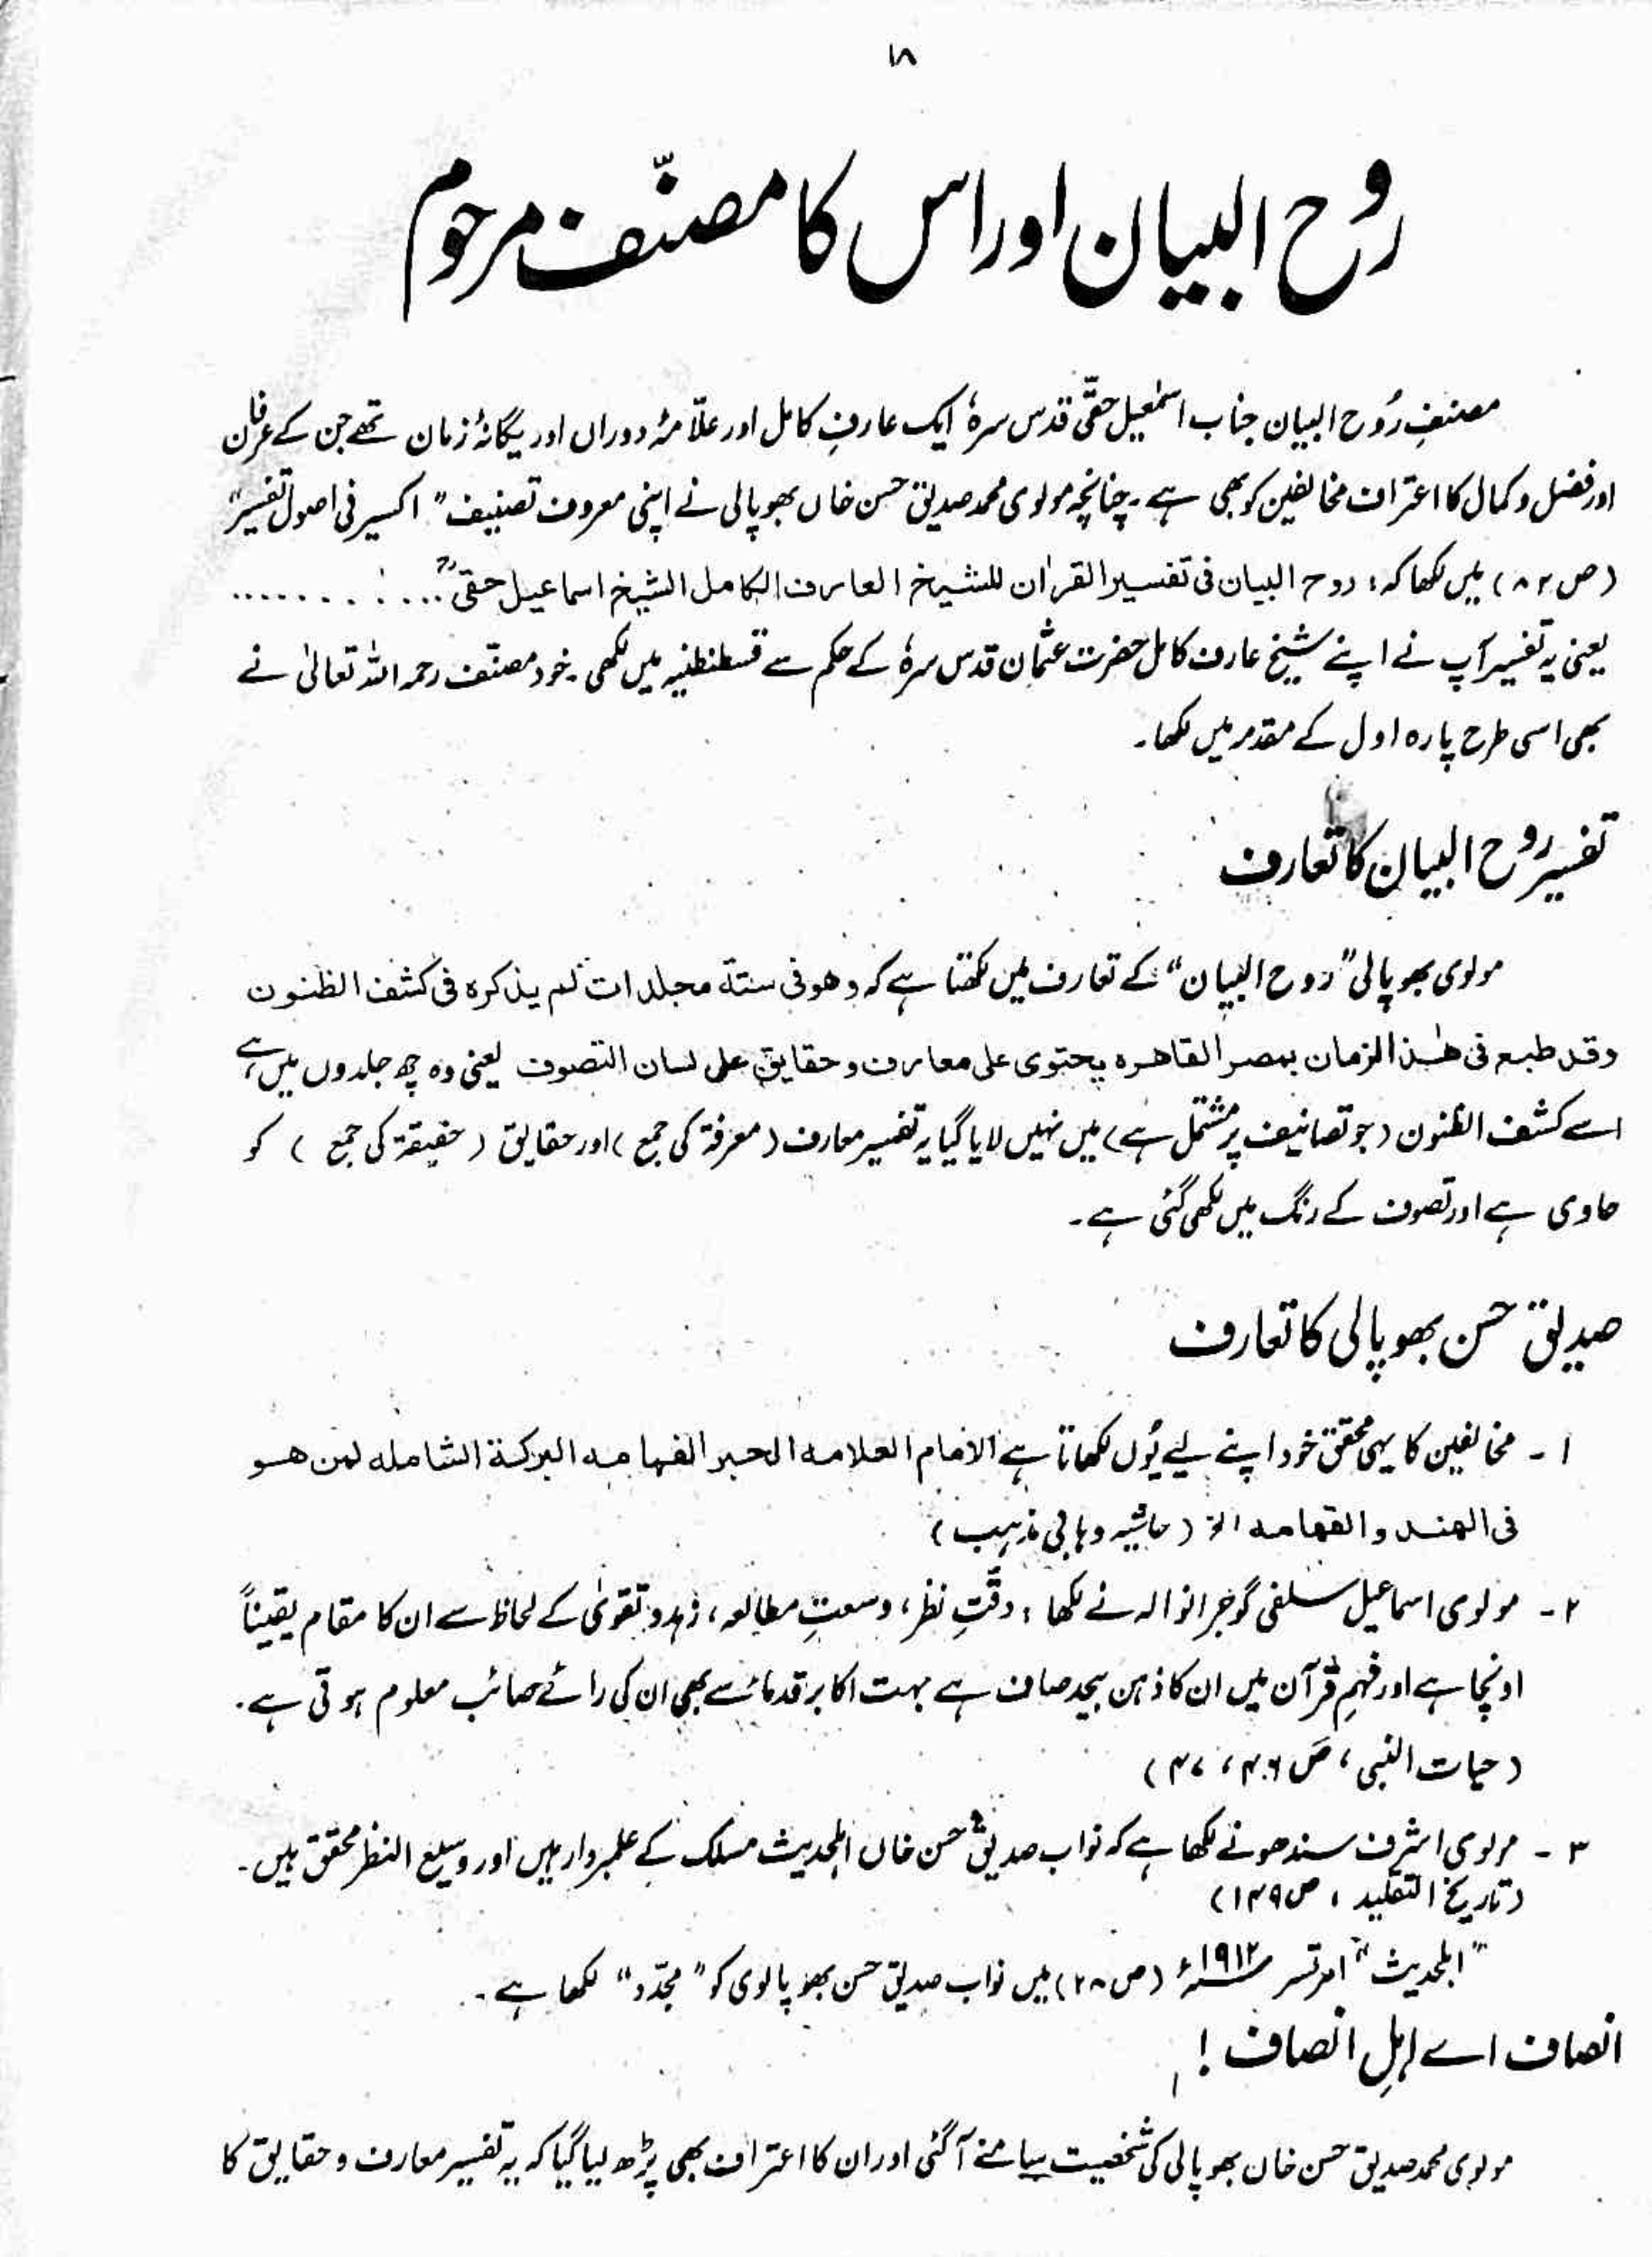 ۱۸
رُوح البیان اور اس کا مصنّف مرحوم
مصنفِ رُوح البیان جناب اسمٰعیل حقّی قدس سرہٗ ایک عارفِ کامل اور علّامۂ دوراں اور یگانۂ زمان تھے جن کے عرفان
اور فضل و کمال کا اعتراف مخالفین کو بھی ہے۔ چنانچہ مولوی محمد صدیق حسن خاں بھوپالی نے اپنی معروف تصنیف "اکسیر فی اصول التفسیر"
(ص ۸۴) میں لکھا کہ: روح البیان فی تفسیر القرآن للشیخ العارف الکامل الشیخ اسماعیل حقی ...........
یعنی یہ تفسیر آپ نے اپنے شیخ عارف کامل حضرت عثمان قدس سرہٗ کے حکم سے قسطنطنیہ میں لکھی۔ خود مصنّف رحمہ اللہ تعالیٰ نے
بھی اسی طرح پارہ اول کے مقدمہ میں لکھا۔
تفسیر روح البیان کا تعارف
مولوی بھوپالی "روح البیان" کے تعارف میں لکھتا ہے کہ وھو فی ستة مجلدات لم یذکرہ فی کشف الظنون
وقد طبع فی ھٰذا الزمان بمصر القاھرہ یحتوی علی معارف و حقایق علی لسان التصوف یعنی وہ چھ جلدوں میں ہے
اسے کشف الظنون (جو تصانیف پر مشتمل ہے) میں نہیں لایا گیا یہ تفسیر معارف (معرفۃ کی جمع) اور حقایق (حقیقۃ کی جمع) کو
حاوی ہے اور تصوف کے رنگ میں لکھی گئی ہے۔
صدیق حسن بھوپالی کا تعارف
۱ - مخالفین کا یہی محقق خود اپنے لیے یُوں لکھاتا ہے الامام العلامہ الحبر الفہامہ البرکة الشاملہ لمن ھو
فی الھند والقہامہ الخ (حاشیہ وہابی مذہب)
۲ - مولوی اسماعیل سلفی گوجرانوالہ نے لکھا: دقّتِ نظر، وسعتِ مطالعہ، زہد و تقویٰ کے لحاظ سے ان کا مقام یقیناً
اونچا ہے اور فہمِ قرآن میں ان کا ذہن بیحد صاف ہے بہت اکابر قدماء سے بھی ان کی رائے صائب معلوم ہوتی ہے۔
(حیات النبی، ص ۴۶، ۴۷)
۳ - مولوی اشرف سندھو نے لکھا ہے کہ نواب صدیق حسن خاں اہلحدیث مسلک کے علمبردار ہیں اور وسیع النظر محقق ہیں۔
(تاریخ التقلید، ص ۱۴۹)
"اہلحدیث" امرتسر ۱۹۱۲ء (ص ۲۸) میں نواب صدیق حسن بھوپالوی کو "مجدّد" لکھا ہے۔
انصاف اے اہلِ انصاف!
مولوی محمد صدیق حسن خاں بھوپالی کی شخصیت سامنے آ گئی اور ان کا اعتراف بھی پڑھ لیا گیا کہ یہ تفسیر معارف و حقایق کا